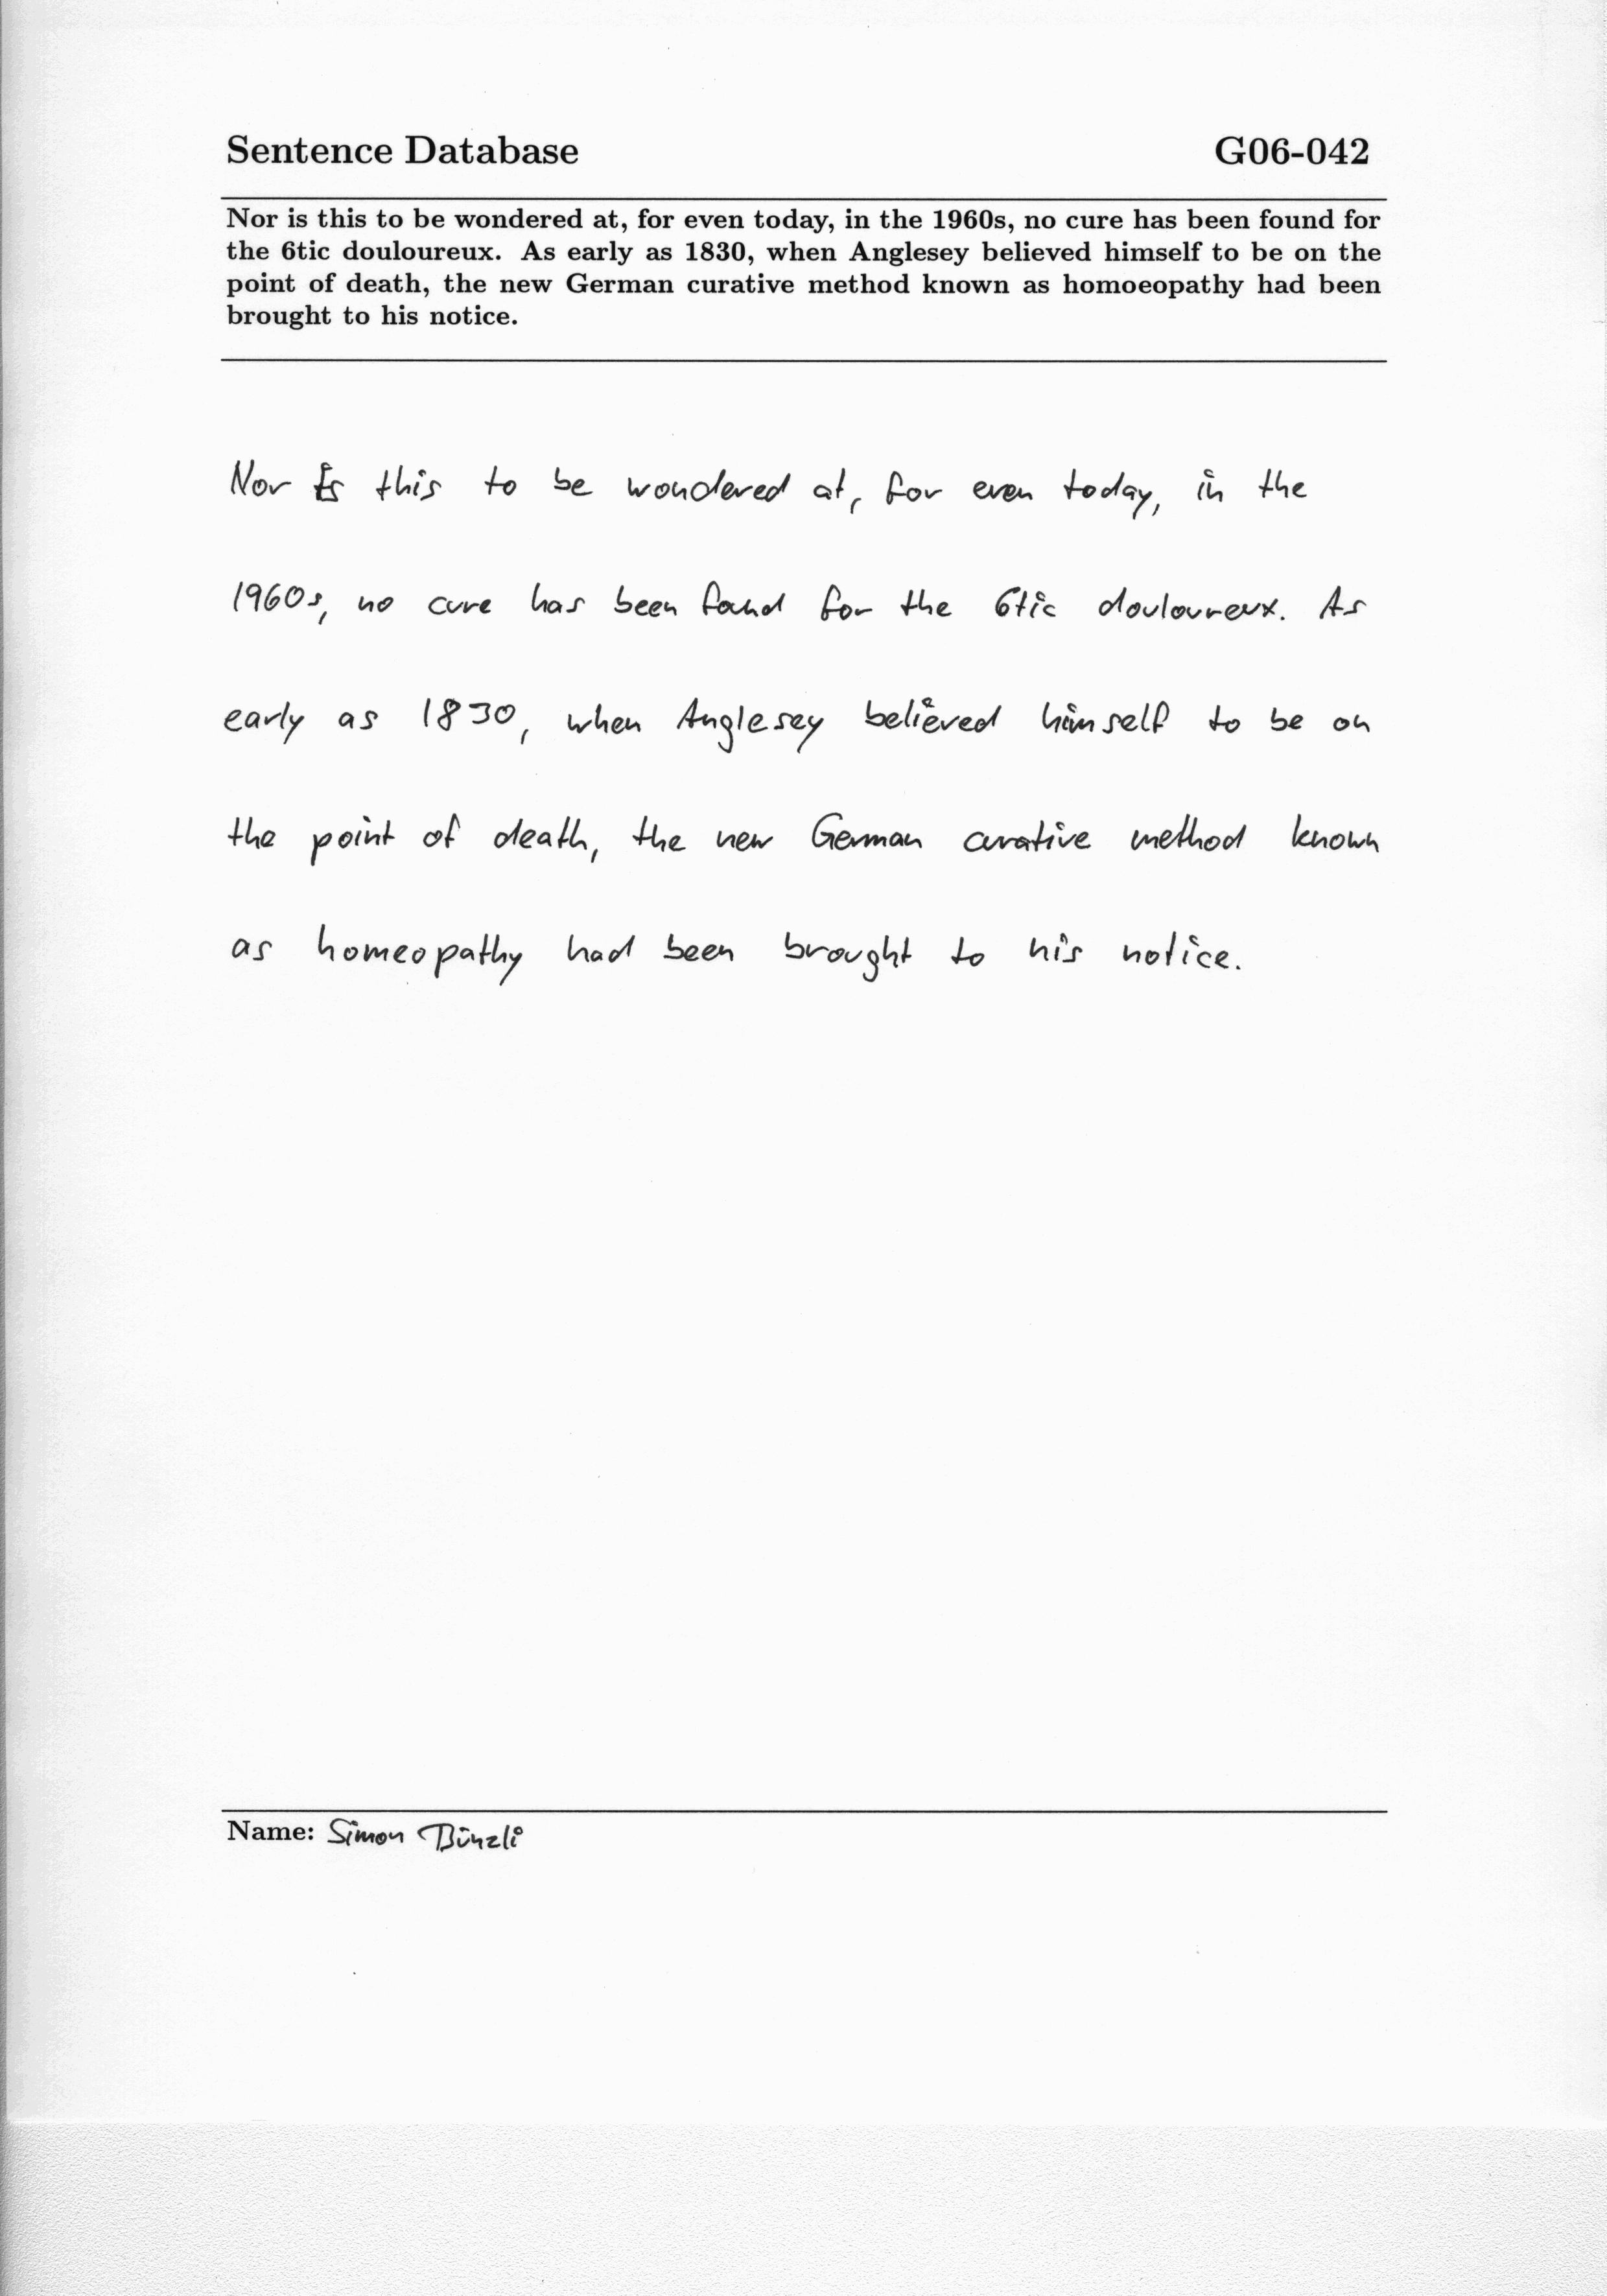 Sentence Database G06-042
Nor is this to be wondered at, for even today, in the 1960s, no cure has been found for
the 6tic douloureux. As early as 1830, when Anglesey believed himself to be on the
point of death, the new German curative method known as homoeopathy had been
brought to his notice.
Nor is this to be wondered at, for even today, in the
1960s, no cure has been found for the 6tic douloureux. As
early as 1830, when Anglesey believed himself to be on
the point of death, the new German curative method known
as homeopathy had been brought to his notice.
Name: Simon Bünzli